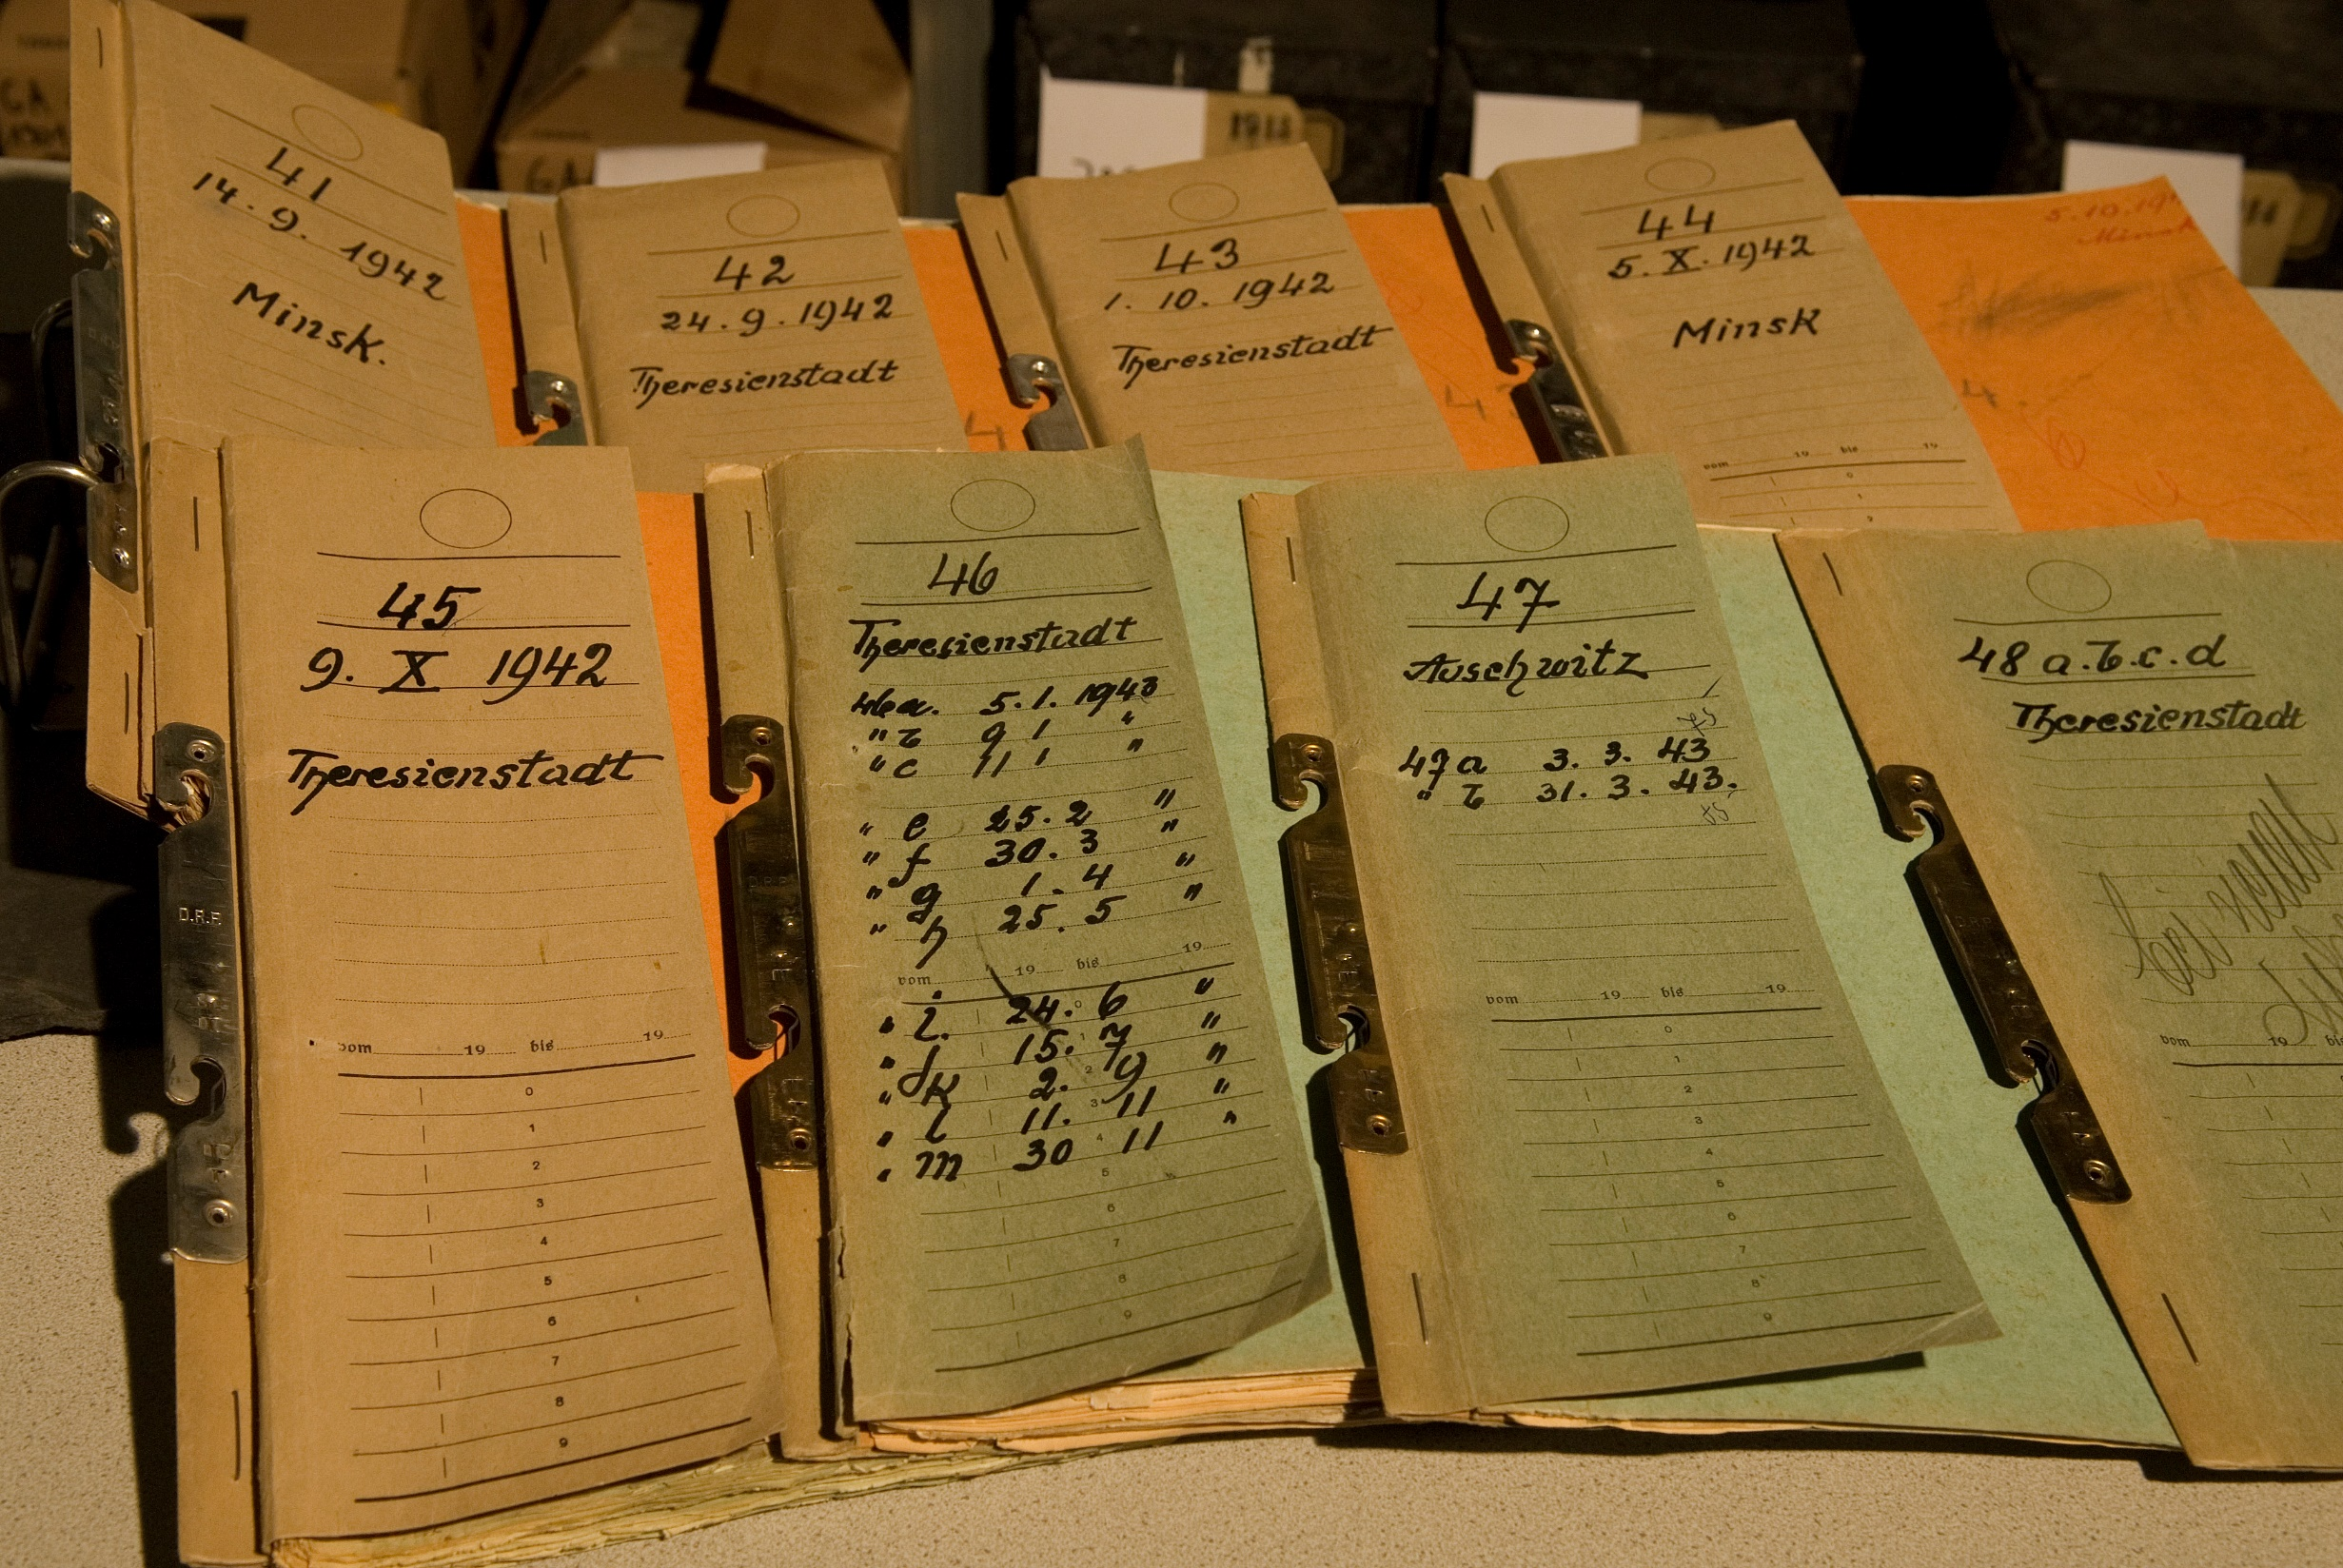 41
14. 9. 1942
Minsk.
42
24. 9. 1942
Theresienstadt
43
1. 10. 1942
Theresienstadt
44
5. X. 1942
Minsk
vom 19 bis 19
0
1
2
5.10.19
Minsk
45
9. X 1942
Theresienstadt
vom 19 bis 19
0
1
2
3
4
5
6
7
8
9
D.R.P.
46
Theresienstadt
46a. 5. 1. 1943
" b 9 1 "
" c 11 1 "
" e 25. 2 "
" f 30. 3 "
" g 1. 4 "
" h 25. 5 "
vom 19 bis 19
" i. 24. 6 "
" j 15. 7 "
" k 2. 9 "
" l 11. 11 "
" m 30 11 "
0
1
2
3
4
5
6
7
8
9
47
Auschwitz
47a 3. 3. 43
" b 31. 3. 43.
vom 19 bis 19
0
1
2
3
4
5
6
7
8
9
48 a.b.c.d
Theresienstadt
vom 19 bis